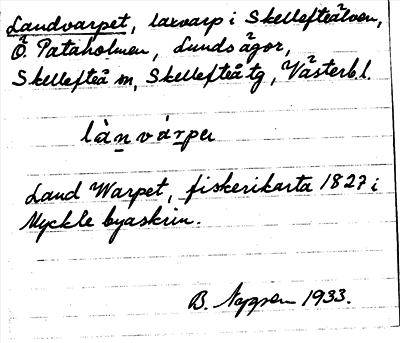 Landvarpet, laxvarp i Skellefteälven,
Ö. Pataholmen, Lunds ägor,
Skellefteå sn, Skellefteå tg, Västerb. l.
lànvárpəɩ
Land Warpet, fiskerikarta 1827 i
Myckle byaskrin.
B. Nygren 1933.